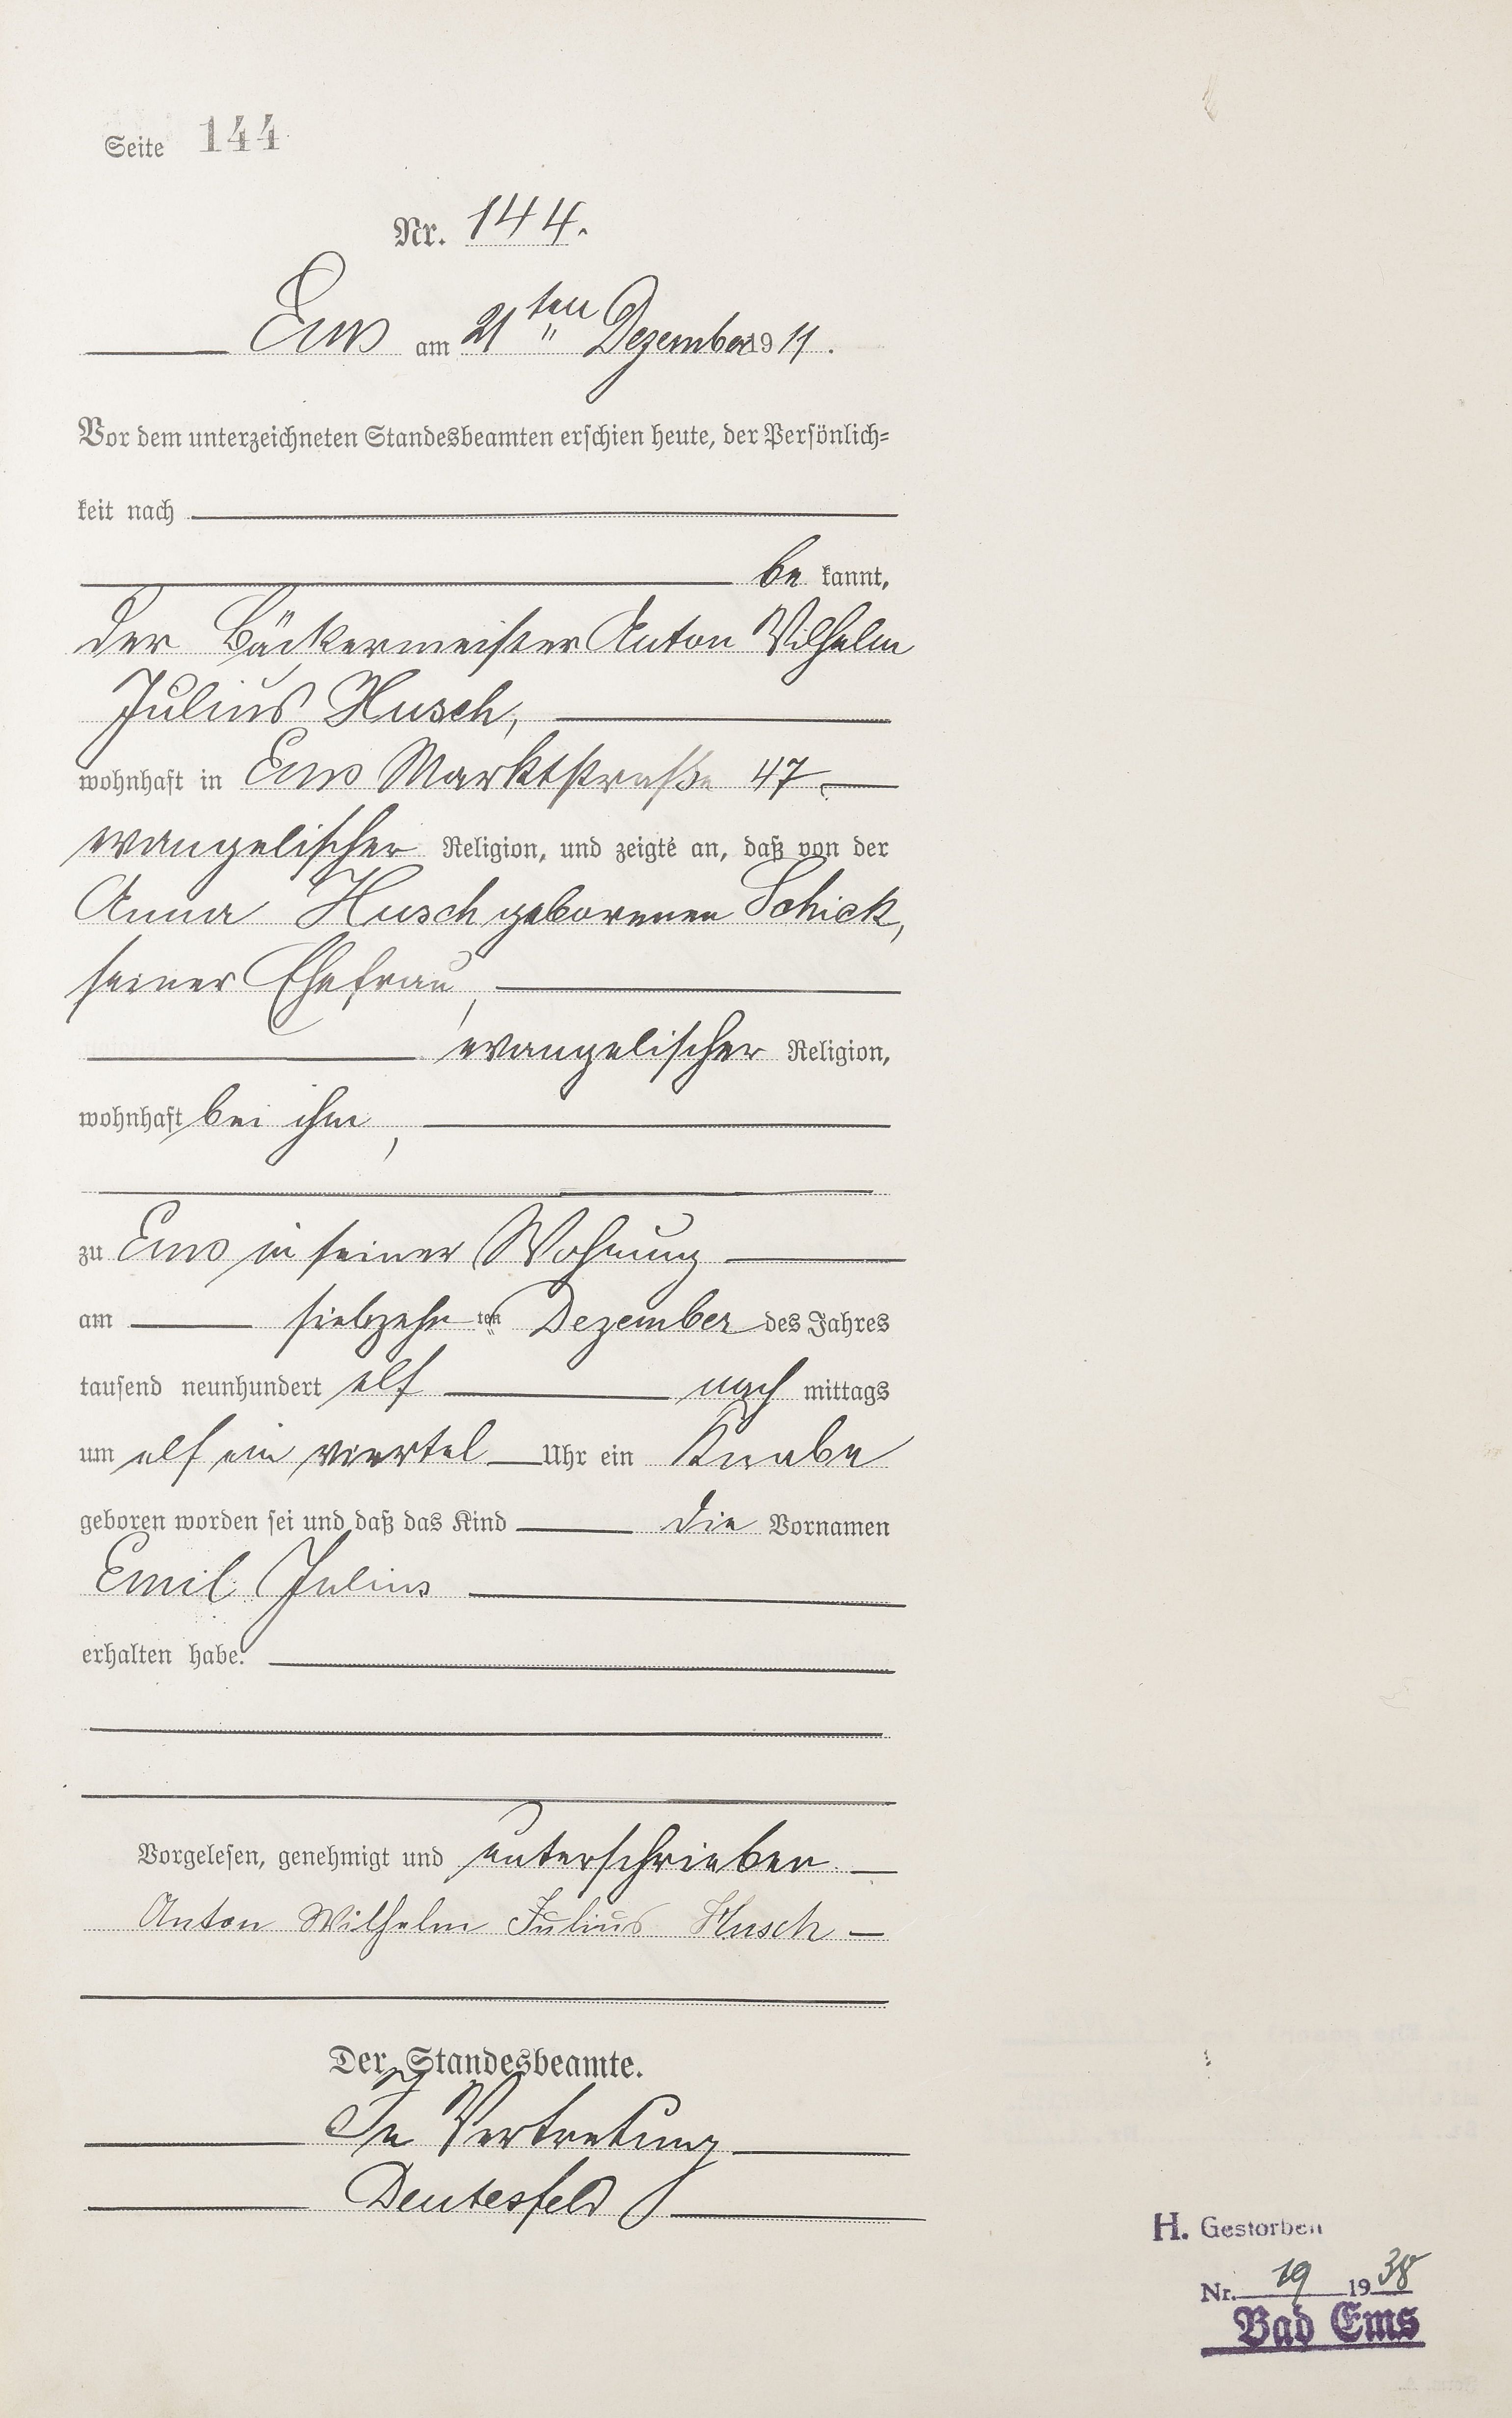 Seite 144
Nr. 144.
Ems am 21 ten Dezember 1911.
Vor dem unterzeichneten Standesbeamten erschien heute, der Persönlich=
keit nach
be kannt,
der Bäckermeister Anton Wilhelm
Julius Husch,
wohnhaft in Ems Marktstraße 47,
evangelischer Religion, und zeigte an, daß von der
Anna Husch geborenen Schick,
seiner Ehefrau,
evangelischer Religion,
wohnhaft bei ihm,
zu Ems in seiner Wohnung
am siebzehn ten Dezember des Jahres
tausend neunhundert elf nach mittags
um elf ein viertel Uhr ein Knabe
geboren worden sei und daß das Kind die Vornamen
Emil Julius
erhalten habe.
Vorgelesen, genehmigt und unterschrieben.
Anton Wilhelm Julius Husch
Der Standesbeamte.
In Vertretung
Deutesfeld
H. Gestorben
Nr. 19 1938
Bad Ems